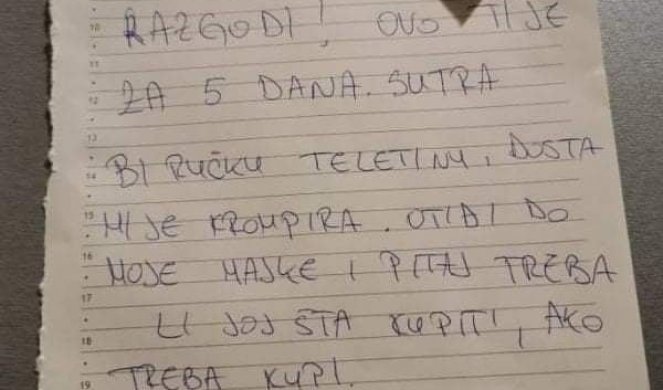 10 RAZGODI! OVO TI JE
11
12 ZA 5 DANA. SUTRA
13
14 BI RUČKU TELETINU, DOSTA
15 MI JE KROMPIRA. OTIDI DO
16 MOJE MAJKE I PITAJ TREBA
17
18 LI JOJ ŠTA KUPITI, AKO
19 TREBA KUPI.